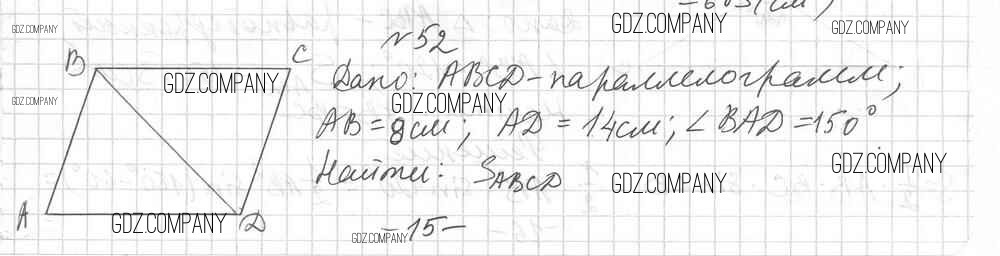 -603(см)
№52
B C
Дано: ABCD-параллелограмм;
AB=8см; AD=14см; ∠BAD=150°
Найти: SABCD
A D
-15-
GDZ.COMPANY
GDZ.COMPANY
GDZ.COMPANY
GDZ.COMPANY
GDZ.COMPANY
GDZ.COMPANY
GDZ.COMPANY
GDZ.COMPANY
GDZ.COMPANY
GDZ.COMPANY